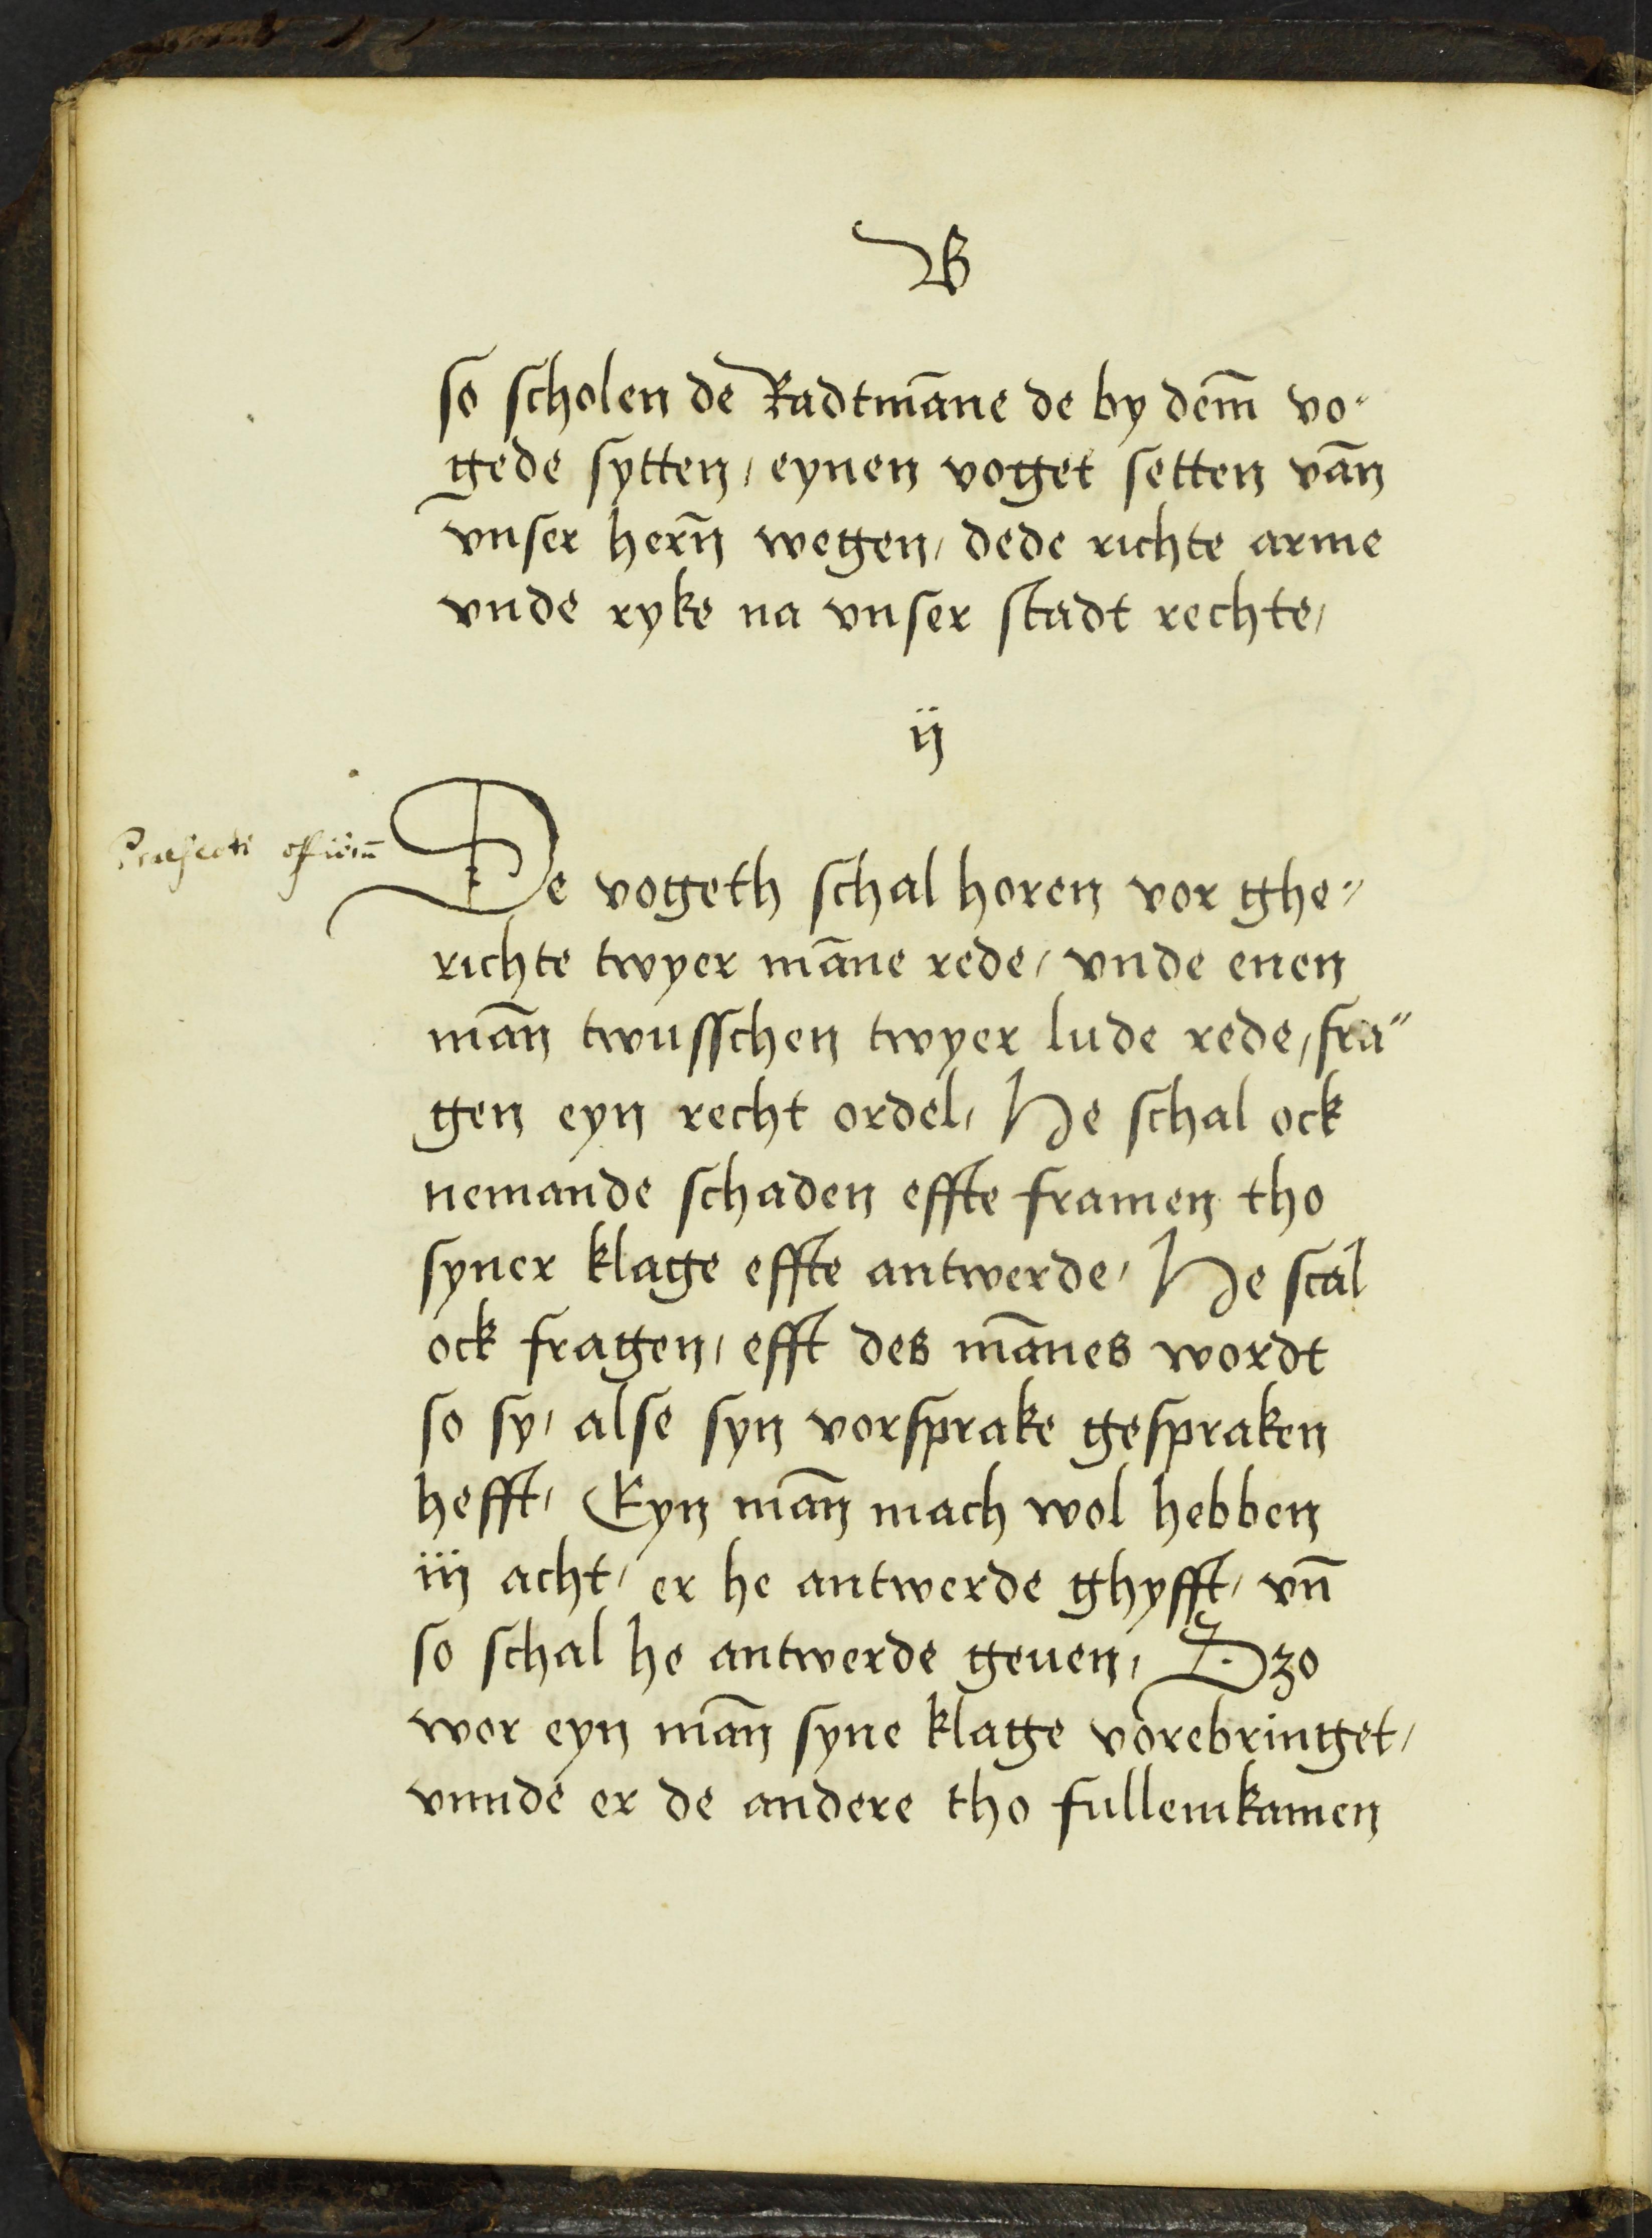 B
so scholen de Radtmāne de by dem̄ vo⸗
gede sytten / eynen voget setten vān
vnser herñ wegen / dede richte arme
vnde ryke na vnser stadt rechte /
ij
Praefecti officiū
De vogeth schal horen vor ghe⸗
richte twyer māne rede / vnde enen
mān twusschen twyer lude rede / fra⸗
gen eyn recht ordel / He schal ock
nemande schaden effte framen tho
syner klage effte antwerde / He scal
ock fragen / efft des mānes wordt
so sy / alse syn vorsprake gespraken
hefft / Eyn mān mach wol hebben
iij acht / er he antwerde ghyfft / vn̄
so schal he antwerde geuen / Szo
wor eyn mān syne klage vorebringet /
vnnde er de andere tho fullemkamen